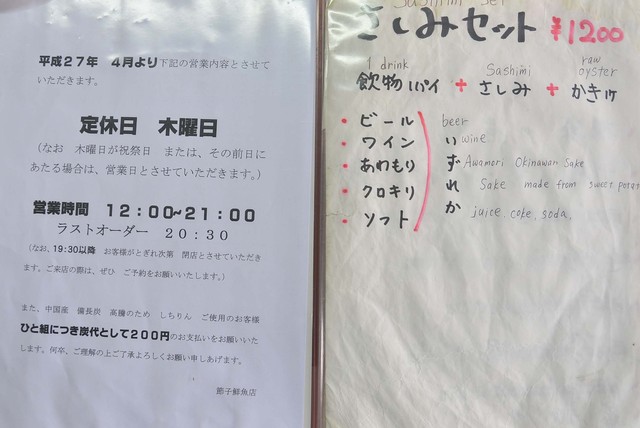 平成27年 4月より下記の営業内容とさせて
いただきます。
定休日 木曜日
(なお 木曜日が祝祭日 または、その前日に
あたる場合は、営業日とさせていただきます。)
営業時間 12:00~21:00
ラストオーダー 20:30
(なお、19:30以降 お客様がとぎれ次第 閉店とさせていただき
ます。ご来店の際は、ぜひ ご予約をお願いいたします。)
また、中国産 備長炭 高騰のため しちりん ご使用のお客様
ひと組につき炭代として200円のお支払いをお願いいた
します。何卒、ご理解の上ご了承よろしくお願い申しあげます。
節子鮮魚店
Sashimi Set
さしみセット ¥1200
1 drink Sashimi raw oyster
飲物1パイ + さしみ + かき1ケ
・ビール beer
・ワイン い wine
・あわもり ず Awamori Okinawan Sake
・クロキリ れ Sake made from sweet potato
・ソフト か juice, coke, soda.